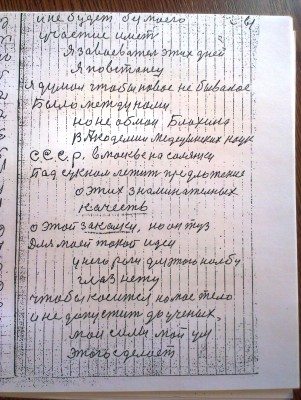 и не будет бу моего
участие имет
Я забаеватся этих дней
Я повстанец
Я думал чтобы новое не бывалое
Было между нами
но не обман Блохина
В Академии Медецинских наук
С.С.С.р. в москве на солянки
Под сукном лежит предложение
о этих знаминательных
качеств
о этой закалки, но он туз
Для моей такой идеи
у него роли для этого на лбу
глаз нету
чтобы косится на мое тело
и не допустит до ученых,
мои силы мой ум
этого сделает